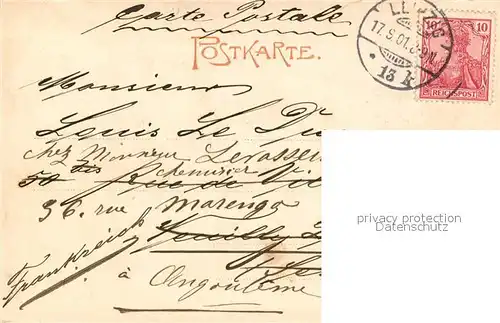 Carte Postale
POSTKARTE.
17.9.01.
* 13 k
10 10
REICHSPOST
Monsieur
Louis Le
chez Monsieur
50 bis Rue de
chemisier
36. rue Marengo
Neuilly
Frankreich
à Angoulême
privacy protection
Oldthing